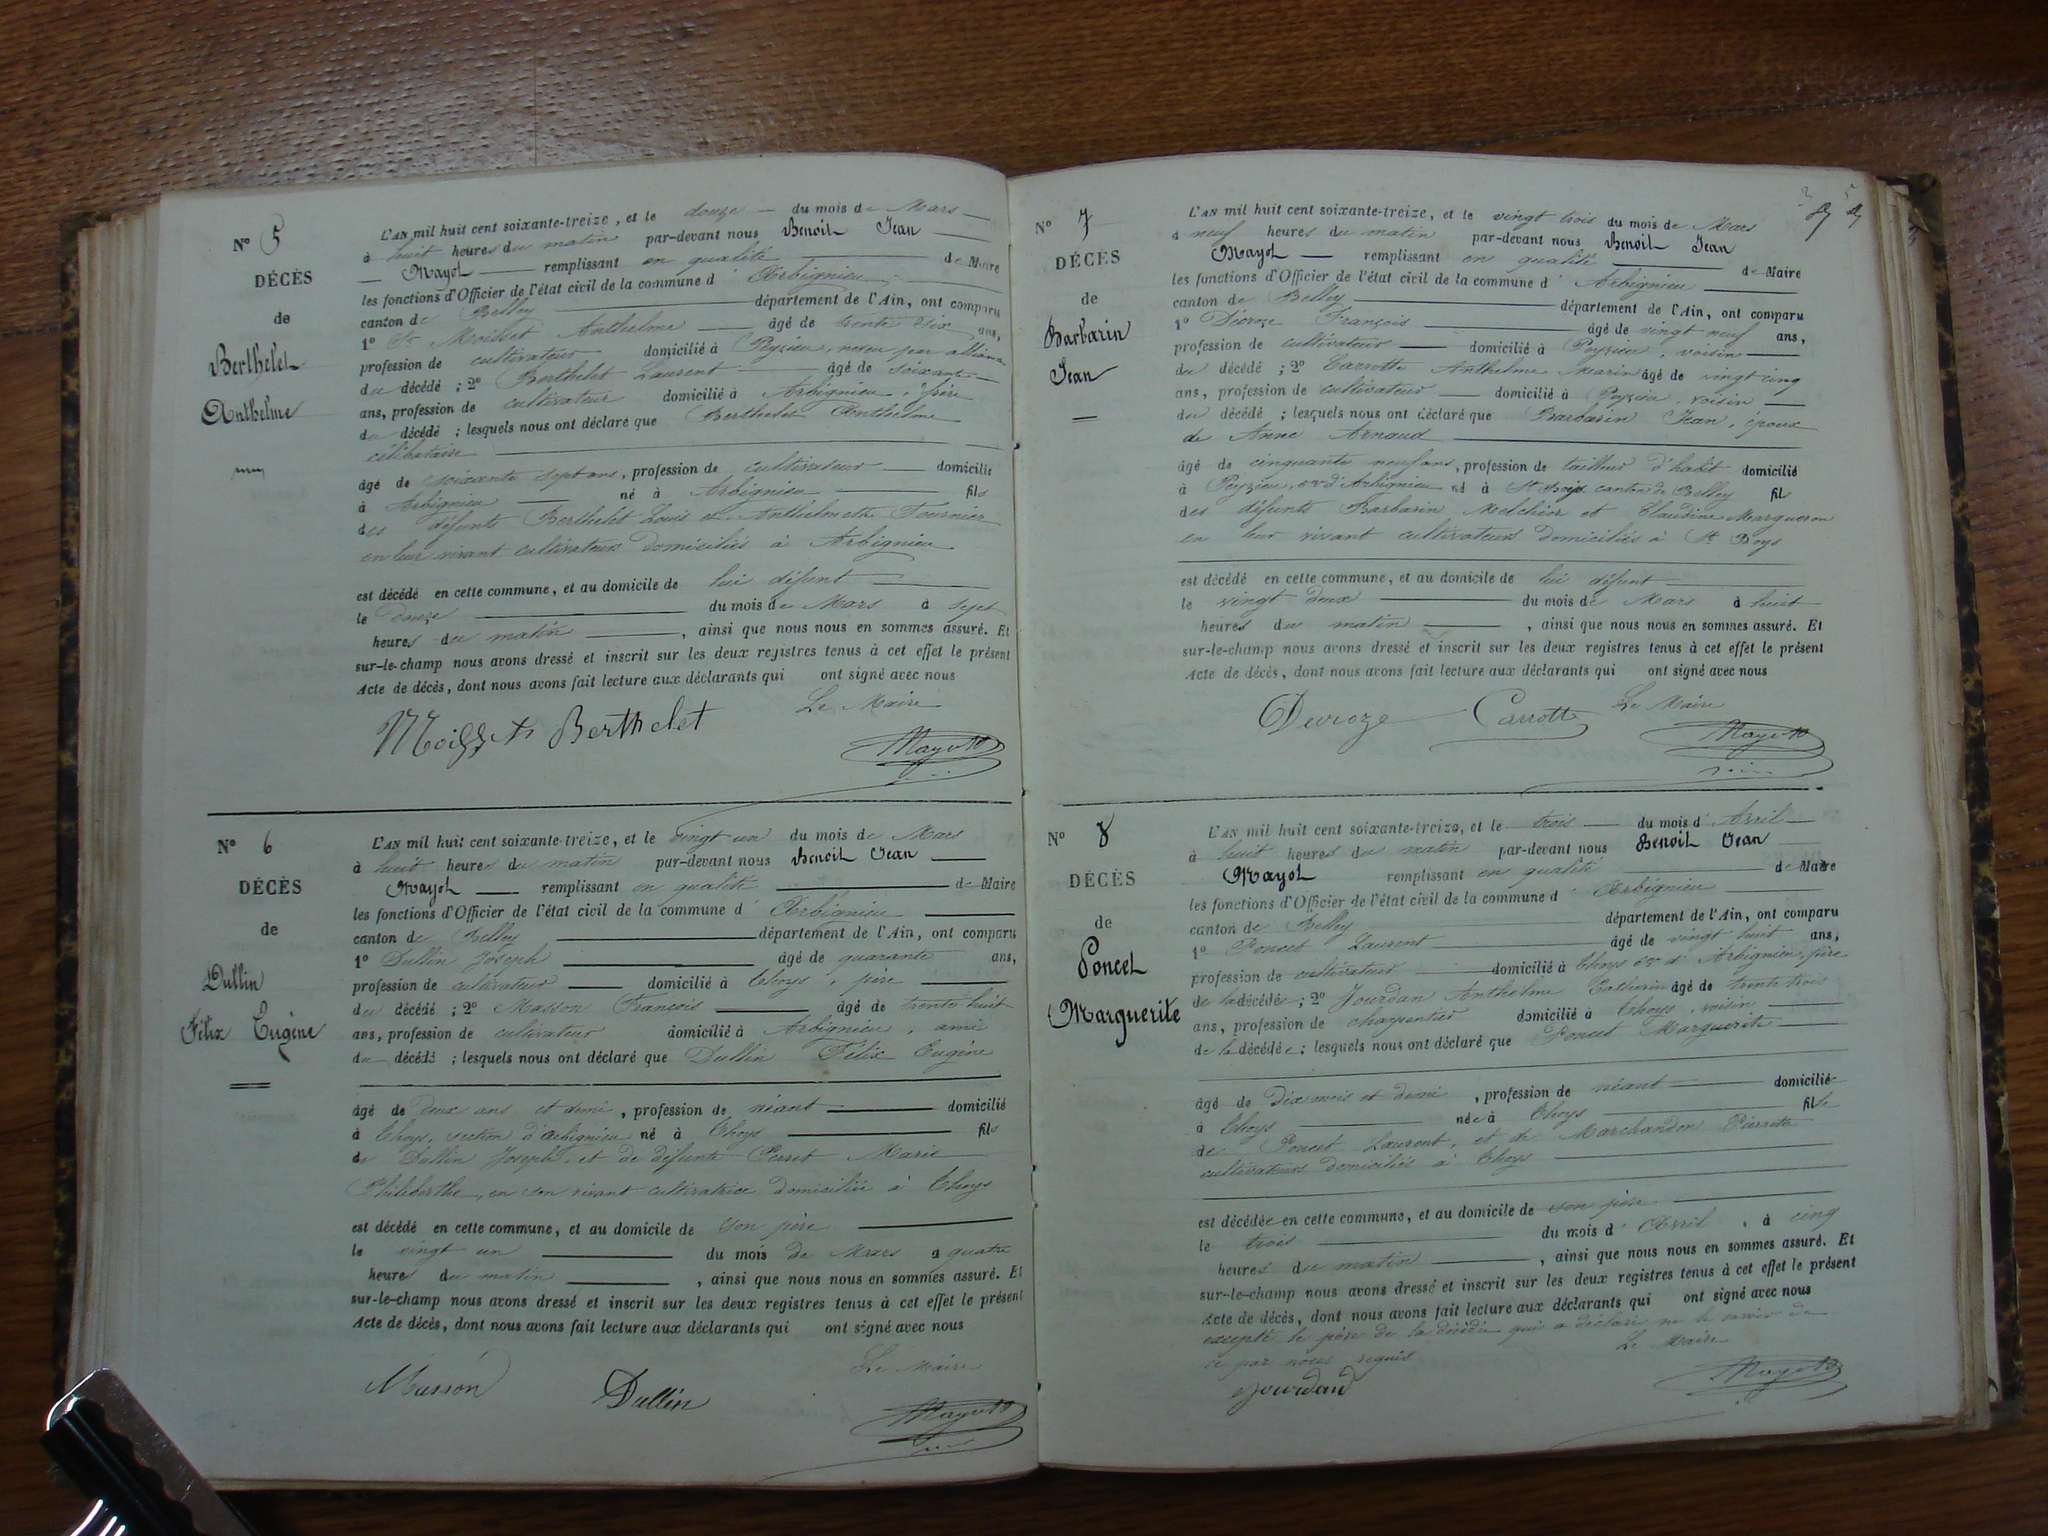 N° 5
DÉCÈS
de
Berthelet
Anthelme
L'AN mil huit cent soixante-treize, et le douze du mois de Mars
à huit heures du matin par-devant nous Benoit Jean
Mayot remplissant en qualité de Maire
les fonctions d'Officier de l'état civil de la commune d'Arbignieu
canton de Belley département de l'Ain, ont comparu
1° Sr Moisset Anthelme âgé de trente six ans,
profession de cultivateur domicilié à Peyzieu, neveu par alliance
du décédé ; 2° Berthelet Laurent âgé de soixante
ans, profession de cultivateur domicilié à Arbignieu, frère
du décédé ; lesquels nous ont déclaré que Berthelet Anthelme
célibataire
âgé de soixante sept ans, profession de cultivateur domicilié
à Arbignieu né à Arbignieu fils
des défunts Berthelet Louis et Anthelmette Fournier
en leur vivant cultivateurs domiciliés à Arbignieu
est décédé en cette commune, et au domicile de lui défunt
le douze du mois de Mars à sept
heures du matin, ainsi que nous nous en sommes assuré. Et
sur-le-champ nous avons dressé et inscrit sur les deux registres tenus à cet effet le présent
Acte de décès, dont nous avons fait lecture aux déclarants qui ont signé avec nous
Le Maire
Berthelet
Mayot
N° 6
DÉCÈS
de
Dullin
Félix Eugène
L'AN mil huit cent soixante-treize, et le vingt un du mois de Mars
à huit heures du matin par-devant nous Benoit Jean
Mayot remplissant en qualité de Maire
les fonctions d'Officier de l'état civil de la commune d'Arbignieu
canton de Belley département de l'Ain, ont comparu
1° Dullin Joseph âgé de quarante ans,
profession de cultivateur domicilié à Thoys, père
du décédé ; 2° Masson François âgé de trente huit
ans, profession de cultivateur domicilié à Arbignieu, ami
du décédé ; lesquels nous ont déclaré que Dullin Félix Eugène
âgé de deux ans et demi, profession de néant domicilié
à Thoys, section d'Arbignieu né à Thoys fils
de Dullin Joseph, et de défunte Perret Marie
Philiberthe, en son vivant cultivatrice domiciliée à Thoys
est décédé en cette commune, et au domicile de son père
le vingt un du mois de Mars à quatre
heures du matin, ainsi que nous nous en sommes assuré. Et
sur-le-champ nous avons dressé et inscrit sur les deux registres tenus à cet effet le présent
Acte de décès, dont nous avons fait lecture aux déclarants qui ont signé avec nous
Le Maire
Masson Dullin
Mayot
N° 7
DÉCÈS
de
Barbarin
Jean
L'AN mil huit cent soixante-treize, et le vingt trois du mois de Mars
à neuf heures du matin par-devant nous Benoit Jean
Mayot remplissant en qualité de Maire
les fonctions d'Officier de l'état civil de la commune d'Arbignieu
canton de Belley département de l'Ain, ont comparu
1° Décroze François âgé de vingt neuf ans,
profession de cultivateur domicilié à Peyzieu, voisin
du décédé ; 2° Carrotte Anthelme Marin âgé de vingt cinq
ans, profession de cultivateur domicilié à Peyzieu, voisin
du décédé ; lesquels nous ont déclaré que Barbarin Jean, époux
de Anne Arnaud
âgé de cinquante neuf ans, profession de tailleur d'habit domicilié
à Peyzieu, con d'Arbignieu né à St Boys canton de Belley fils
des défunts Barbarin Melchior et Claudine Margueron
en leur vivant cultivateurs domiciliés à St Boys
est décédé en cette commune, et au domicile de lui défunt
le vingt deux du mois de Mars à huit
heures du matin, ainsi que nous nous en sommes assuré. Et
sur-le-champ nous avons dressé et inscrit sur les deux registres tenus à cet effet le présent
Acte de décès, dont nous avons fait lecture aux déclarants qui ont signé avec nous
Le Maire
Decroze Carrotte
Mayot
N° 8
DÉCÈS
de
Poncet
Marguerite
L'AN mil huit cent soixante-treize, et le trois du mois d'Avril
à huit heures du matin par-devant nous Benoit Jean
Mayot remplissant en qualité de Maire
les fonctions d'Officier de l'état civil de la commune d'Arbignieu
canton de Belley département de l'Ain, ont comparu
1° Poncet Laurent âgé de vingt huit ans,
profession de cultivateur domicilié à Thoys con d'Arbignieu, père
de la décédée ; 2° Jourdan Anthelme âgé de trente trois
ans, profession de charpentier domicilié à Thoys, voisin
de la décédée ; lesquels nous ont déclaré que Poncet Marguerite
âgé de dix mois et demi, profession de néant domicilié
à Thoys née à Thoys fille
de Poncet Laurent, et de Marchandon Pierrette
cultivateurs domiciliés à Thoys
est décédée en cette commune, et au domicile de son père
le trois du mois d'Avril, à cinq
heures du matin, ainsi que nous nous en sommes assuré. Et
sur-le-champ nous avons dressé et inscrit sur les deux registres tenus à cet effet le présent
Acte de décès, dont nous avons fait lecture aux déclarants qui ont signé avec nous
excepté le père de la décédée qui a déclaré ne le savoir de
ce par nous requis
Le Maire
Jourdan
Mayot